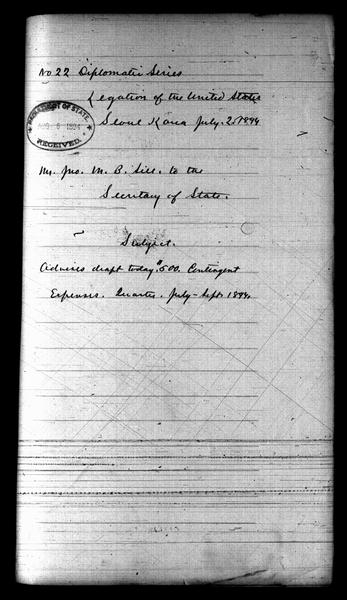 No 22 Diplomatic Series
Legation of the United States
Seoul Korea July 2. 1894
DEPARTMENT OF STATE.
AUG 6 1894
RECEIVED.
Mr. Jno. M. B. Sill. to the
Secretary of State.
Subject.
Advises draft today. $500. Contingent
Expenses. Quarter. July-Sept. 1894.